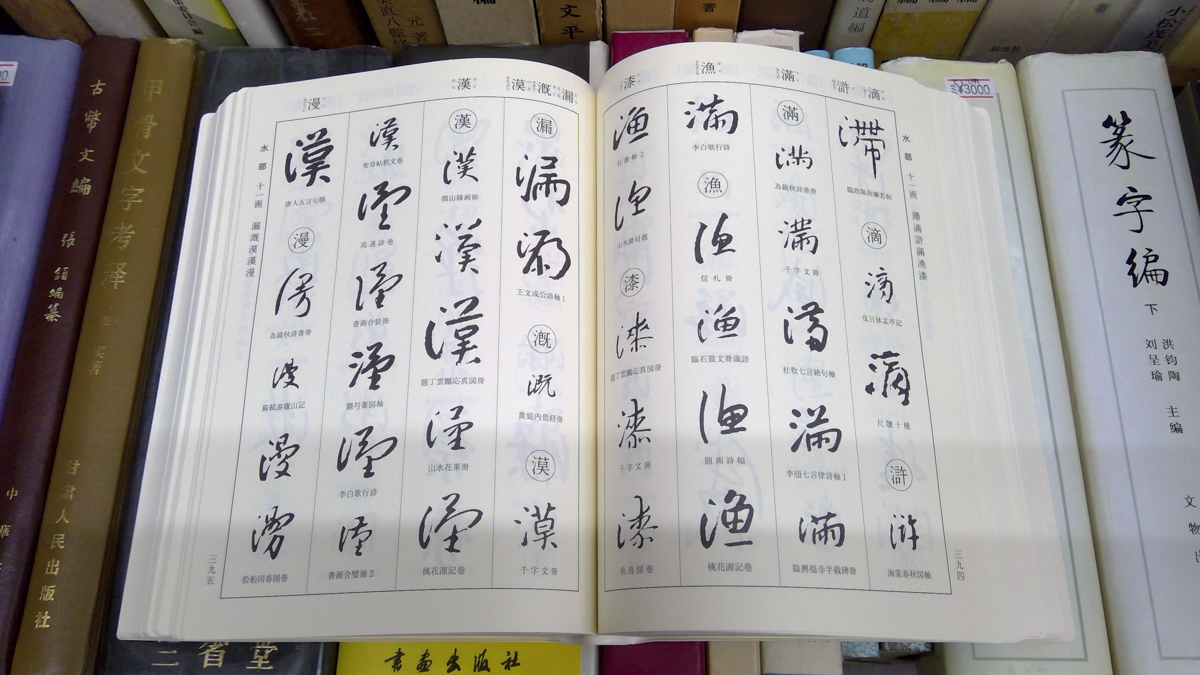 古幣文編
張頷編纂
中華
甲骨文字考释
甘肃人民出版社
三省堂
書画出版社
¥3000
篆字编
下
洪钧陶 主编
刘呈瑜
文物出
滴
滸
滿
漁
漆
水部 十一画 滯滴滸滿漁漆
三九四
滯
滴
滴
皮日休孟亭記
滴
尺牘十種
滸
滸
海棠春秋図軸
滿
滿
為鏡秋詩書冊
滿
千字文冊
滿
杜牧七言絶句軸
滿
李頎七言律詩軸1
滿
臨興福寺半截碑冊
滿
李白歌行詩
漁
漁
信札冊
漁
臨石鼓文冊識語
漁
題画詩幅
漁
桃花源記巻
漁
行書軸2
漁
山水冊対題
漆
漆
題丁雲鵬応真図冊
漆
千字文冊
漆
魚鳥図巻
漏
漑
漠
漢
漫
水部 十一画 漏漑漠漢漫
三九五
漏
漏
漏
王文成公語軸1
漑
漑
黄庭内景経冊
漠
漠
千字文冊
漢
漢
倣山録画冊
漢
漢
題丁雲鵬応真図冊
漢
山水花果冊
漢
桃花源記巻
漢
聖母帖釈文巻
漢
高適詩巻
漢
書画合装冊
漢
題弓薬図軸
漢
李白歌行詩
漢
書画合璧冊2
漢
唐人五言句聯
漫
漫
為鏡秋詩書冊
漫
蘇軾游廬山記
漫
漫
松柏同春図巻